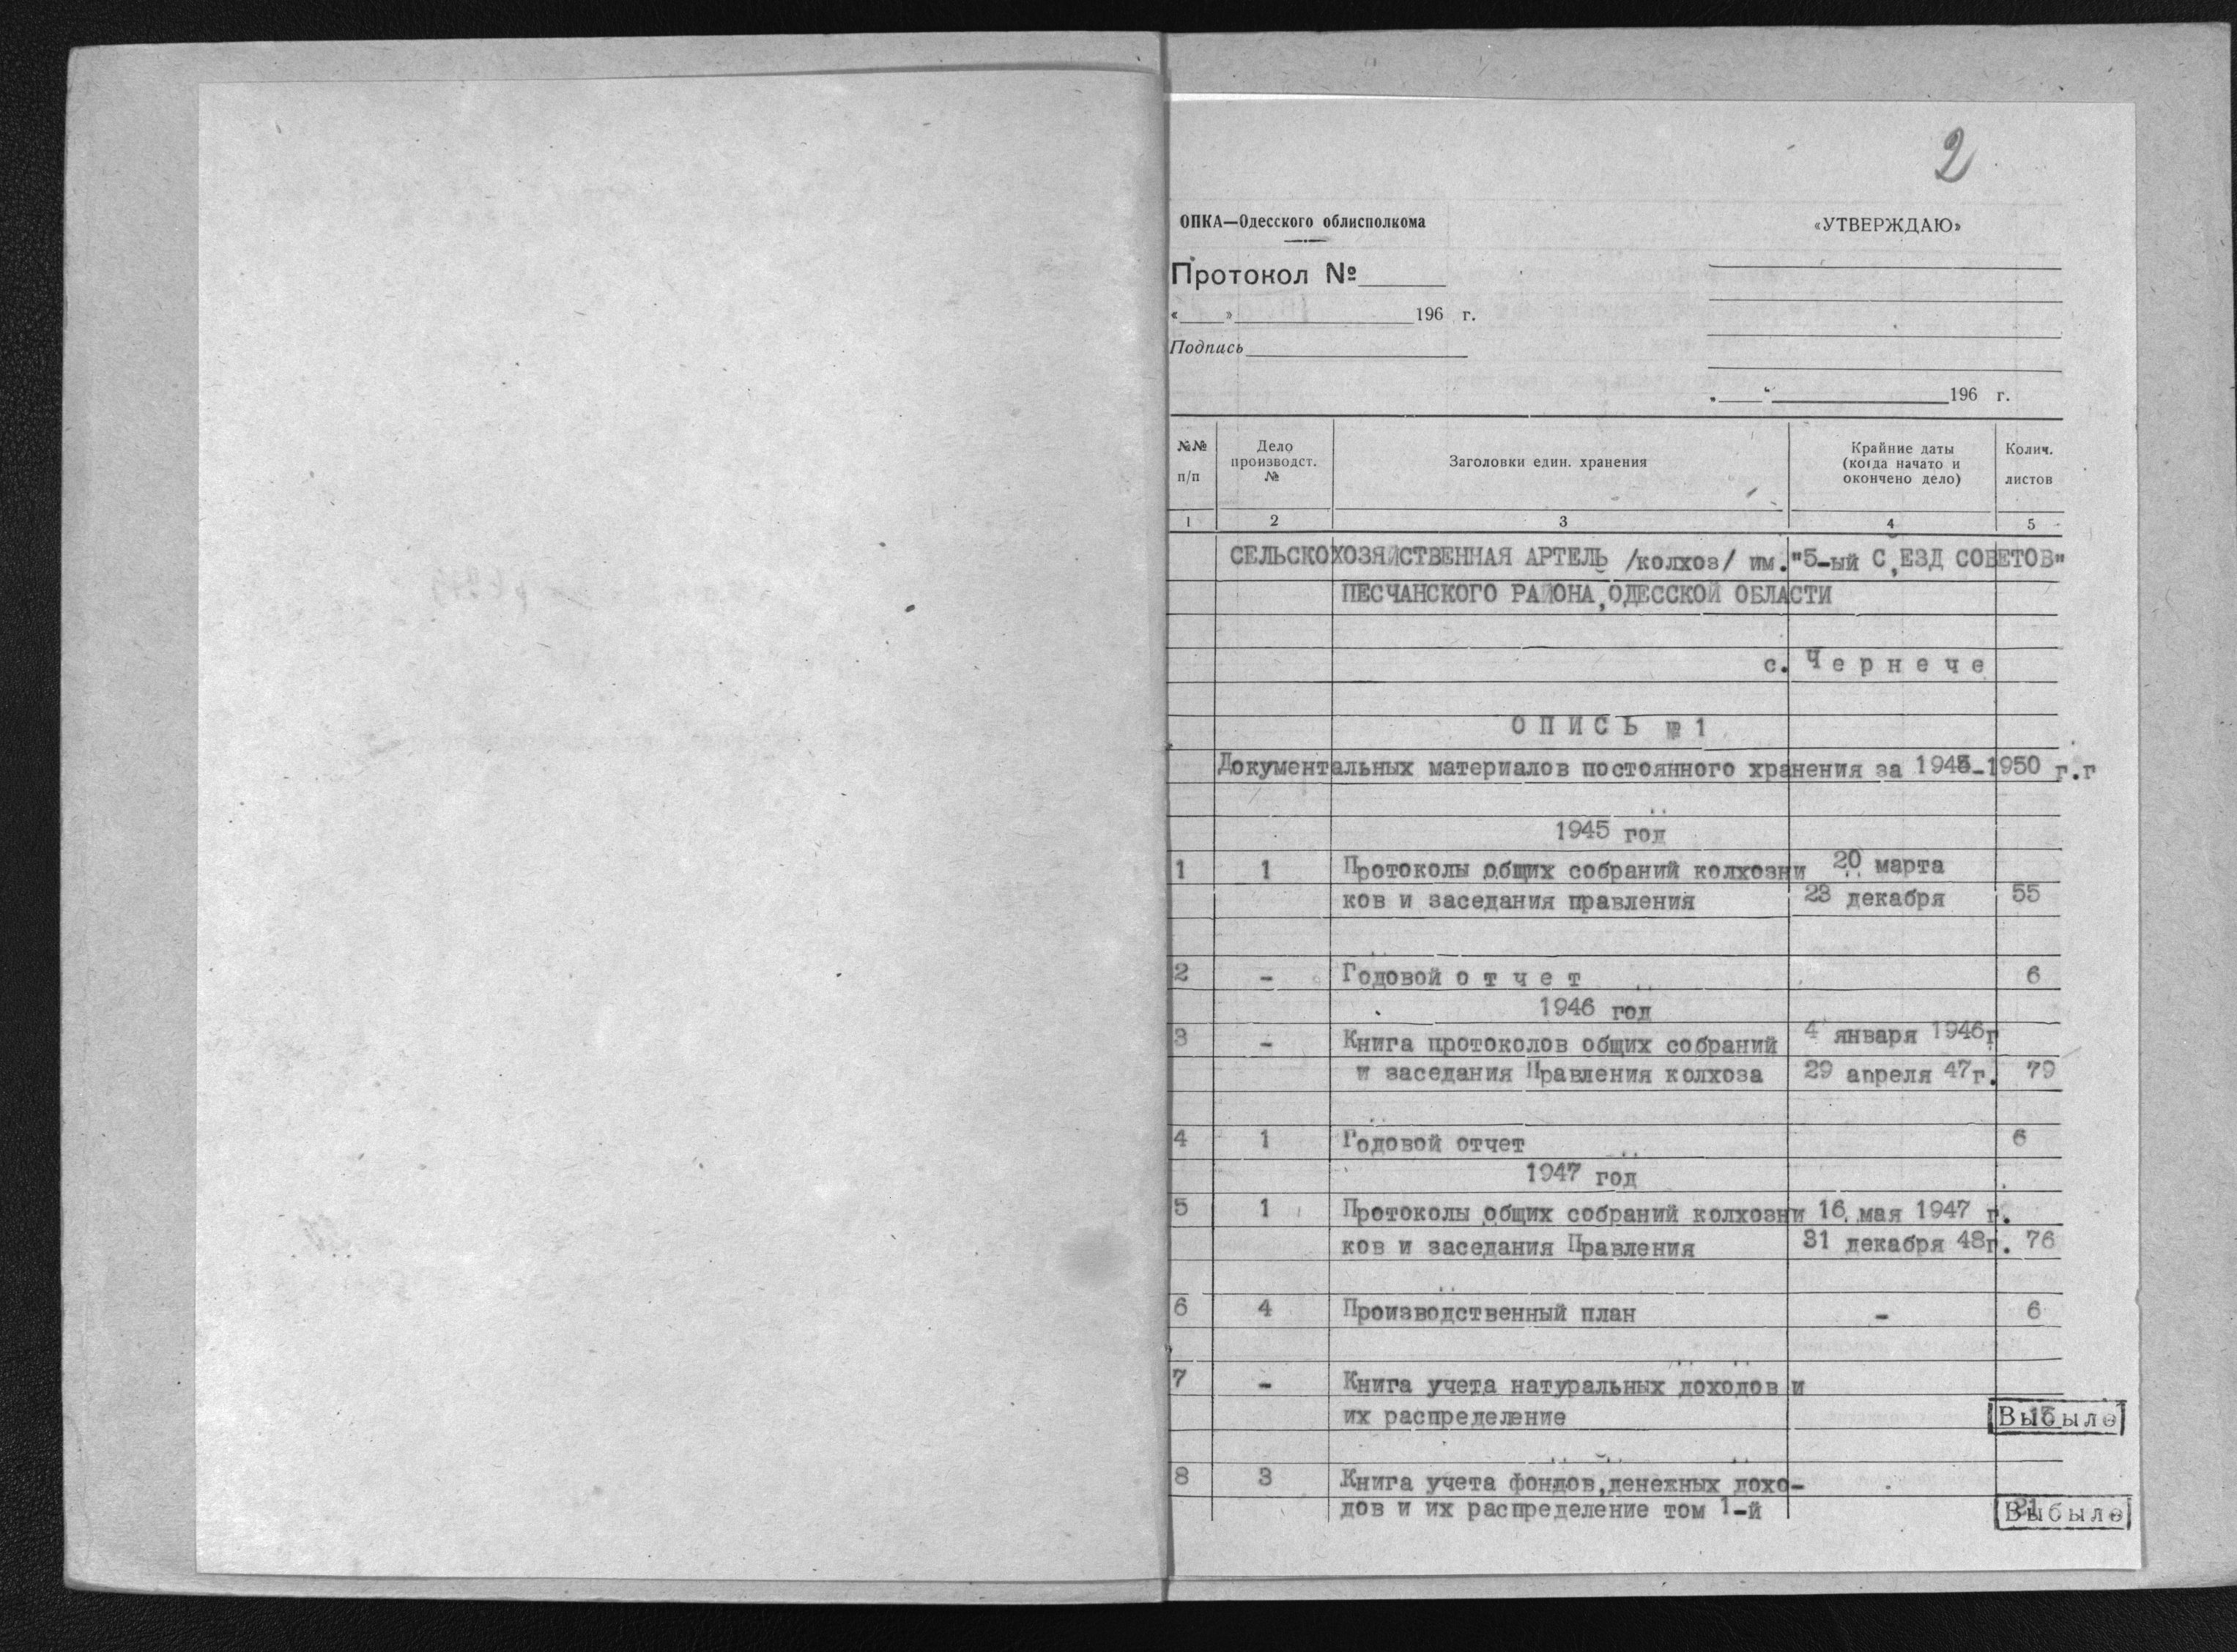 2
ОПКА—Одесского облисполкома
«УТВЕРЖДАЮ»
Протокол №
« » 196 г.
Подпись
„ “ 196 г.
№№ п/п
Дело производст. №
Заголовки един. хранения
Крайние даты (когда начато и окончено дело)
Колич. листов
1 2 3 4 5
СЕЛЬСКОХОЗЯЙСТВЕННАЯ АРТЕЛЬ /колхоз/ им."5-ый С,ЕЗД СОВЕТОВ"
ПЕСЧАНСКОГО РАЙОНА,ОДЕССКОЙ ОБЛАСТИ
с. Ч е р н е ч е
О П И С Ь № 1
Документальных материалов постоянного хранения за 1945-1950 г.г
1945 год
1 1 Протоколы общих собраний колхозни 20 марта
ков и заседания правления 23 декабря 55
2 - Годовой о т ч е т 6
1946 год
3 - Книга протоколов общих собраний 4 января 1946г
и заседания Правления колхоза 29 апреля 47г. 79
4 1 Годовой отчет 6
1947 год
5 1 Протоколы общих собраний колхозни 16 мая 1947 г.
ков и заседания Правления 31 декабря 48г. 76
6 4 Производственный план - 6
7 - Книга учета натуральных доходов и
их распределение Выбыло
8 3 Книга учета фондов,денежных дохо-
дов и их распределение том 1-й 21 Выбыло